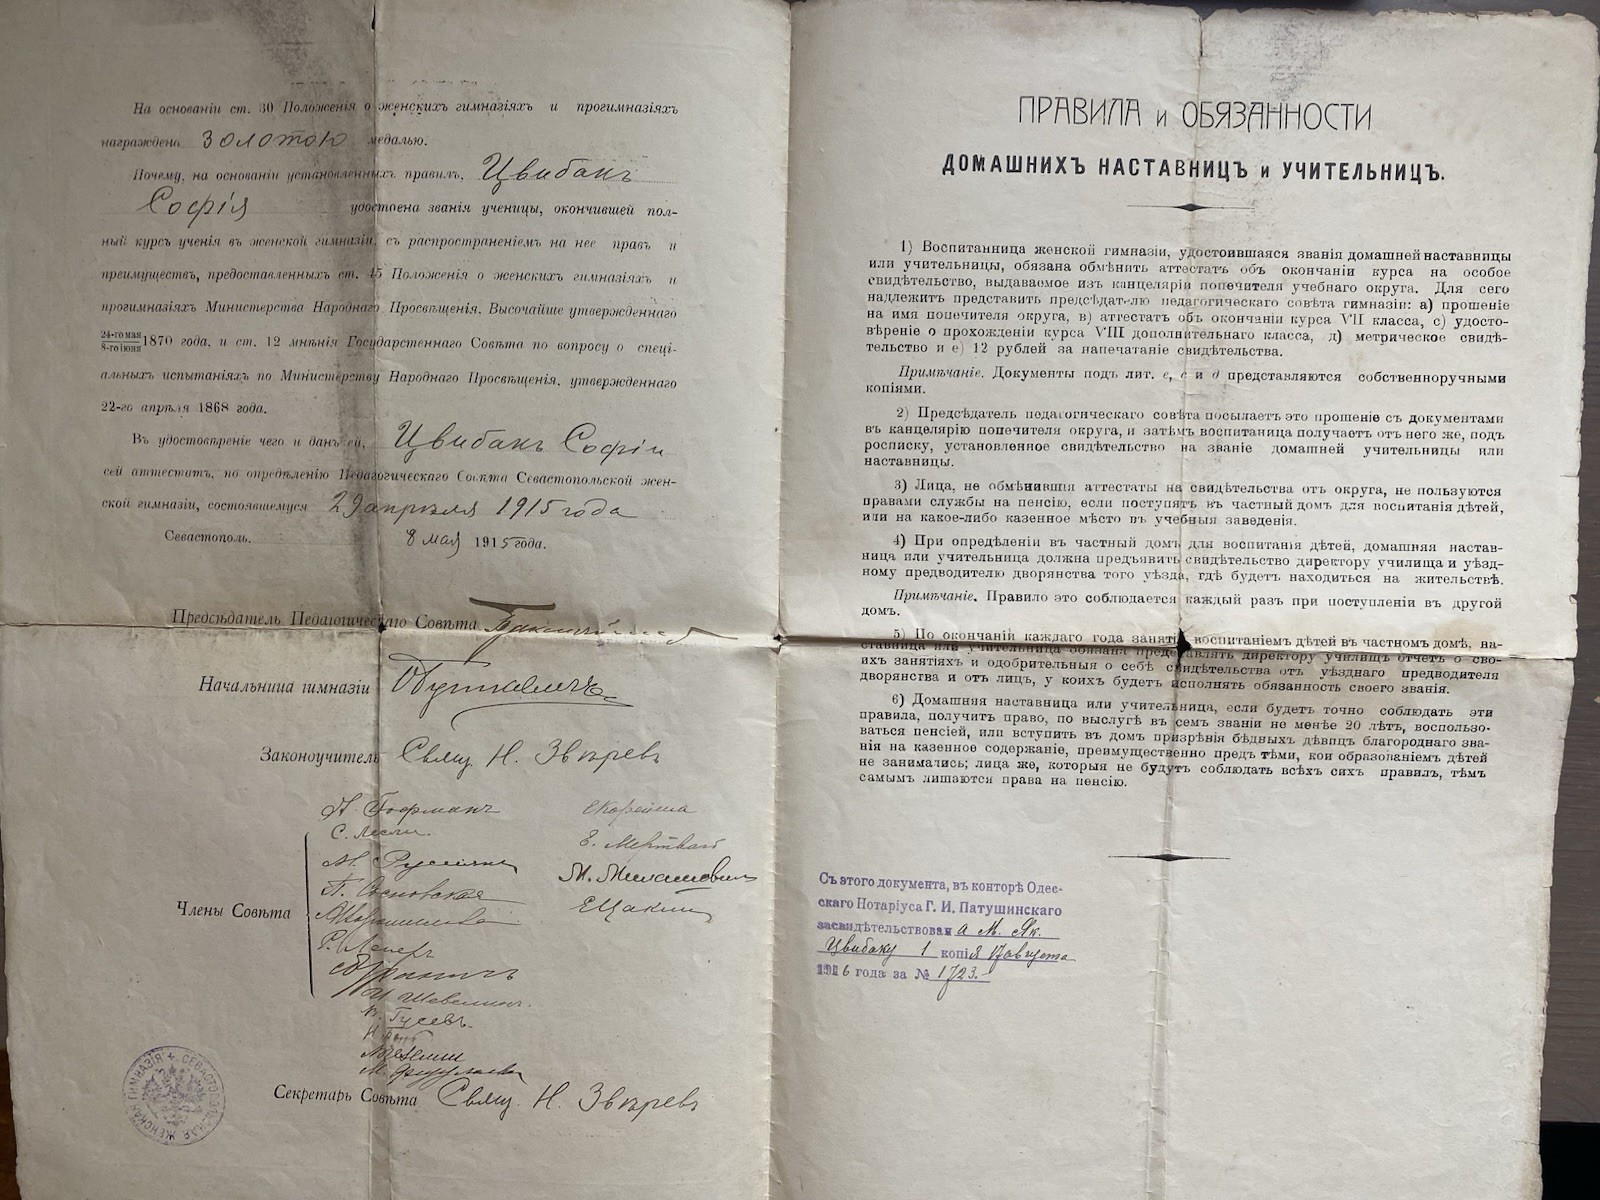 На основаніи ст. 30 Положенія о женскихъ гимназіяхъ и прогимназіяхъ
награждена золотою медалью.
Почему, на основаніи установленныхъ правилъ, Цвибакъ
Софія удостоена званія ученицы, окончившей пол-
ный курсъ ученія въ женской гимназіи, съ распространеніемъ на нее правъ и
преимуществъ, предоставленныхъ ст. 45 Положенія о женскихъ гимназіяхъ и
прогимназіяхъ Министерства Народнаго Просвѣщенія, Высочайше утвержденнаго
24-го мая
8-го іюня 1870 года, и ст. 12 мнѣнія Государственнаго Совѣта по вопросу о спеці-
альныхъ испытаніяхъ по Министерству Народнаго Просвѣщенія, утвержденнаго
22-го апрѣля 1868 года.
Въ удостовѣреніе чего и данъ ей, Цвибакъ Софіи
сей аттестатъ, по опредѣленію Педагогическаго Совѣта Севастопольской жен-
ской гимназіи, состоявшемуся 29 апрѣля 1915 года
Севастополь. 8 мая 1915 года.
Предсѣдатель Педагогическаго Совѣта
Начальница гимназіи
Законоучитель Свящ. Н. Звѣревъ
А. Гофманъ
С. Лесли.
П. Сосновская
Е. Мертваго
М. Милашевичъ
Члены Совѣта
В. Гусевъ.
Секретарь Совѣта Свящ. Н. Звѣревъ
СЕВАСТОПОЛЬСКАЯ ЖЕНСКАЯ ГИМНАЗІЯ
ПРАВИЛА и ОБЯЗАННОСТИ
ДОМАШНИХЪ НАСТАВНИЦЪ и УЧИТЕЛЬНИЦЪ.
1) Воспитанница женской гимназіи, удостоившаяся званія домашней наставницы
или учительницы, обязана обмѣнить аттестатъ объ окончаніи курса на особое
свидѣтельство, выдаваемое изъ канцеляріи попечителя учебнаго округа. Для сего
надлежитъ представить предсѣдателю педагогическаго совѣта гимназіи: а) прошеніе
на имя попечителя округа, в) аттестатъ объ окончаніи курса VII класса, с) удосто-
вѣреніе о прохожденіи курса VIII дополнительнаго класса, д) метрическое свидѣ-
тельство и е) 12 рублей за напечатаніе свидѣтельства.
Примѣчаніе. Документы подъ лит. в, с и д представляются собственноручными
копіями.
2) Предсѣдатель педагогическаго совѣта посылаетъ это прошеніе съ документами
въ канцелярію попечителя округа, и затѣмъ воспитаница получаетъ отъ него же, подъ
росписку, установленное свидѣтельство на званіе домашней учительницы или
наставницы.
3) Лица, не обмѣнившія аттестаты на свидѣтельства отъ округа, не пользуются
правами службы на пенсію, если поступятъ въ частный домъ для воспитанія дѣтей,
или на какое-либо казенное мѣсто въ учебныя заведенія.
4) При опредѣленіи въ частный домъ для воспитанія дѣтей, домашняя настав-
ница или учительница должна предъявить свидѣтельство директору училища и уѣзд-
ному предводителю дворянства того уѣзда, гдѣ будетъ находиться на жительствѣ.
Примѣчаніе. Правило это соблюдается каждый разъ при поступленіи въ другой
домъ.
5) По окончаній каждаго года занятія воспитаніемъ дѣтей въ частномъ домѣ, на-
ставница или учительница обязана представлять директору училищъ отчетъ о сво-
ихъ занятіяхъ и одобрительныя о себѣ свидѣтельства отъ уѣзднаго предводителя
дворянства и отъ лицъ, у коихъ будетъ исполнять обязанность своего званія.
6) Домашняя наставница или учительница, если будетъ точно соблюдать эти
правила, получитъ право, по выслугѣ въ семъ званіи не менѣе 20 лѣтъ, воспользо-
ваться пенсіей, или вступить въ домъ призрѣнія бѣдныхъ дѣвицъ благороднаго зва-
нія на казенное содержаніе, преимущественно предъ тѣми, кои образованіемъ дѣтей
не занимались; лица же, которыя не будутъ соблюдать всѣхъ сихъ правилъ, тѣмъ
самымъ лишаются права на пенсію.
Съ этого документа, въ конторѣ Одес-
скаго Нотаріуса Г. И. Патушинскаго
засвидѣтельствована М. Як.
Цвибаку 1 копія 17 августа
1916 года за № 1723.